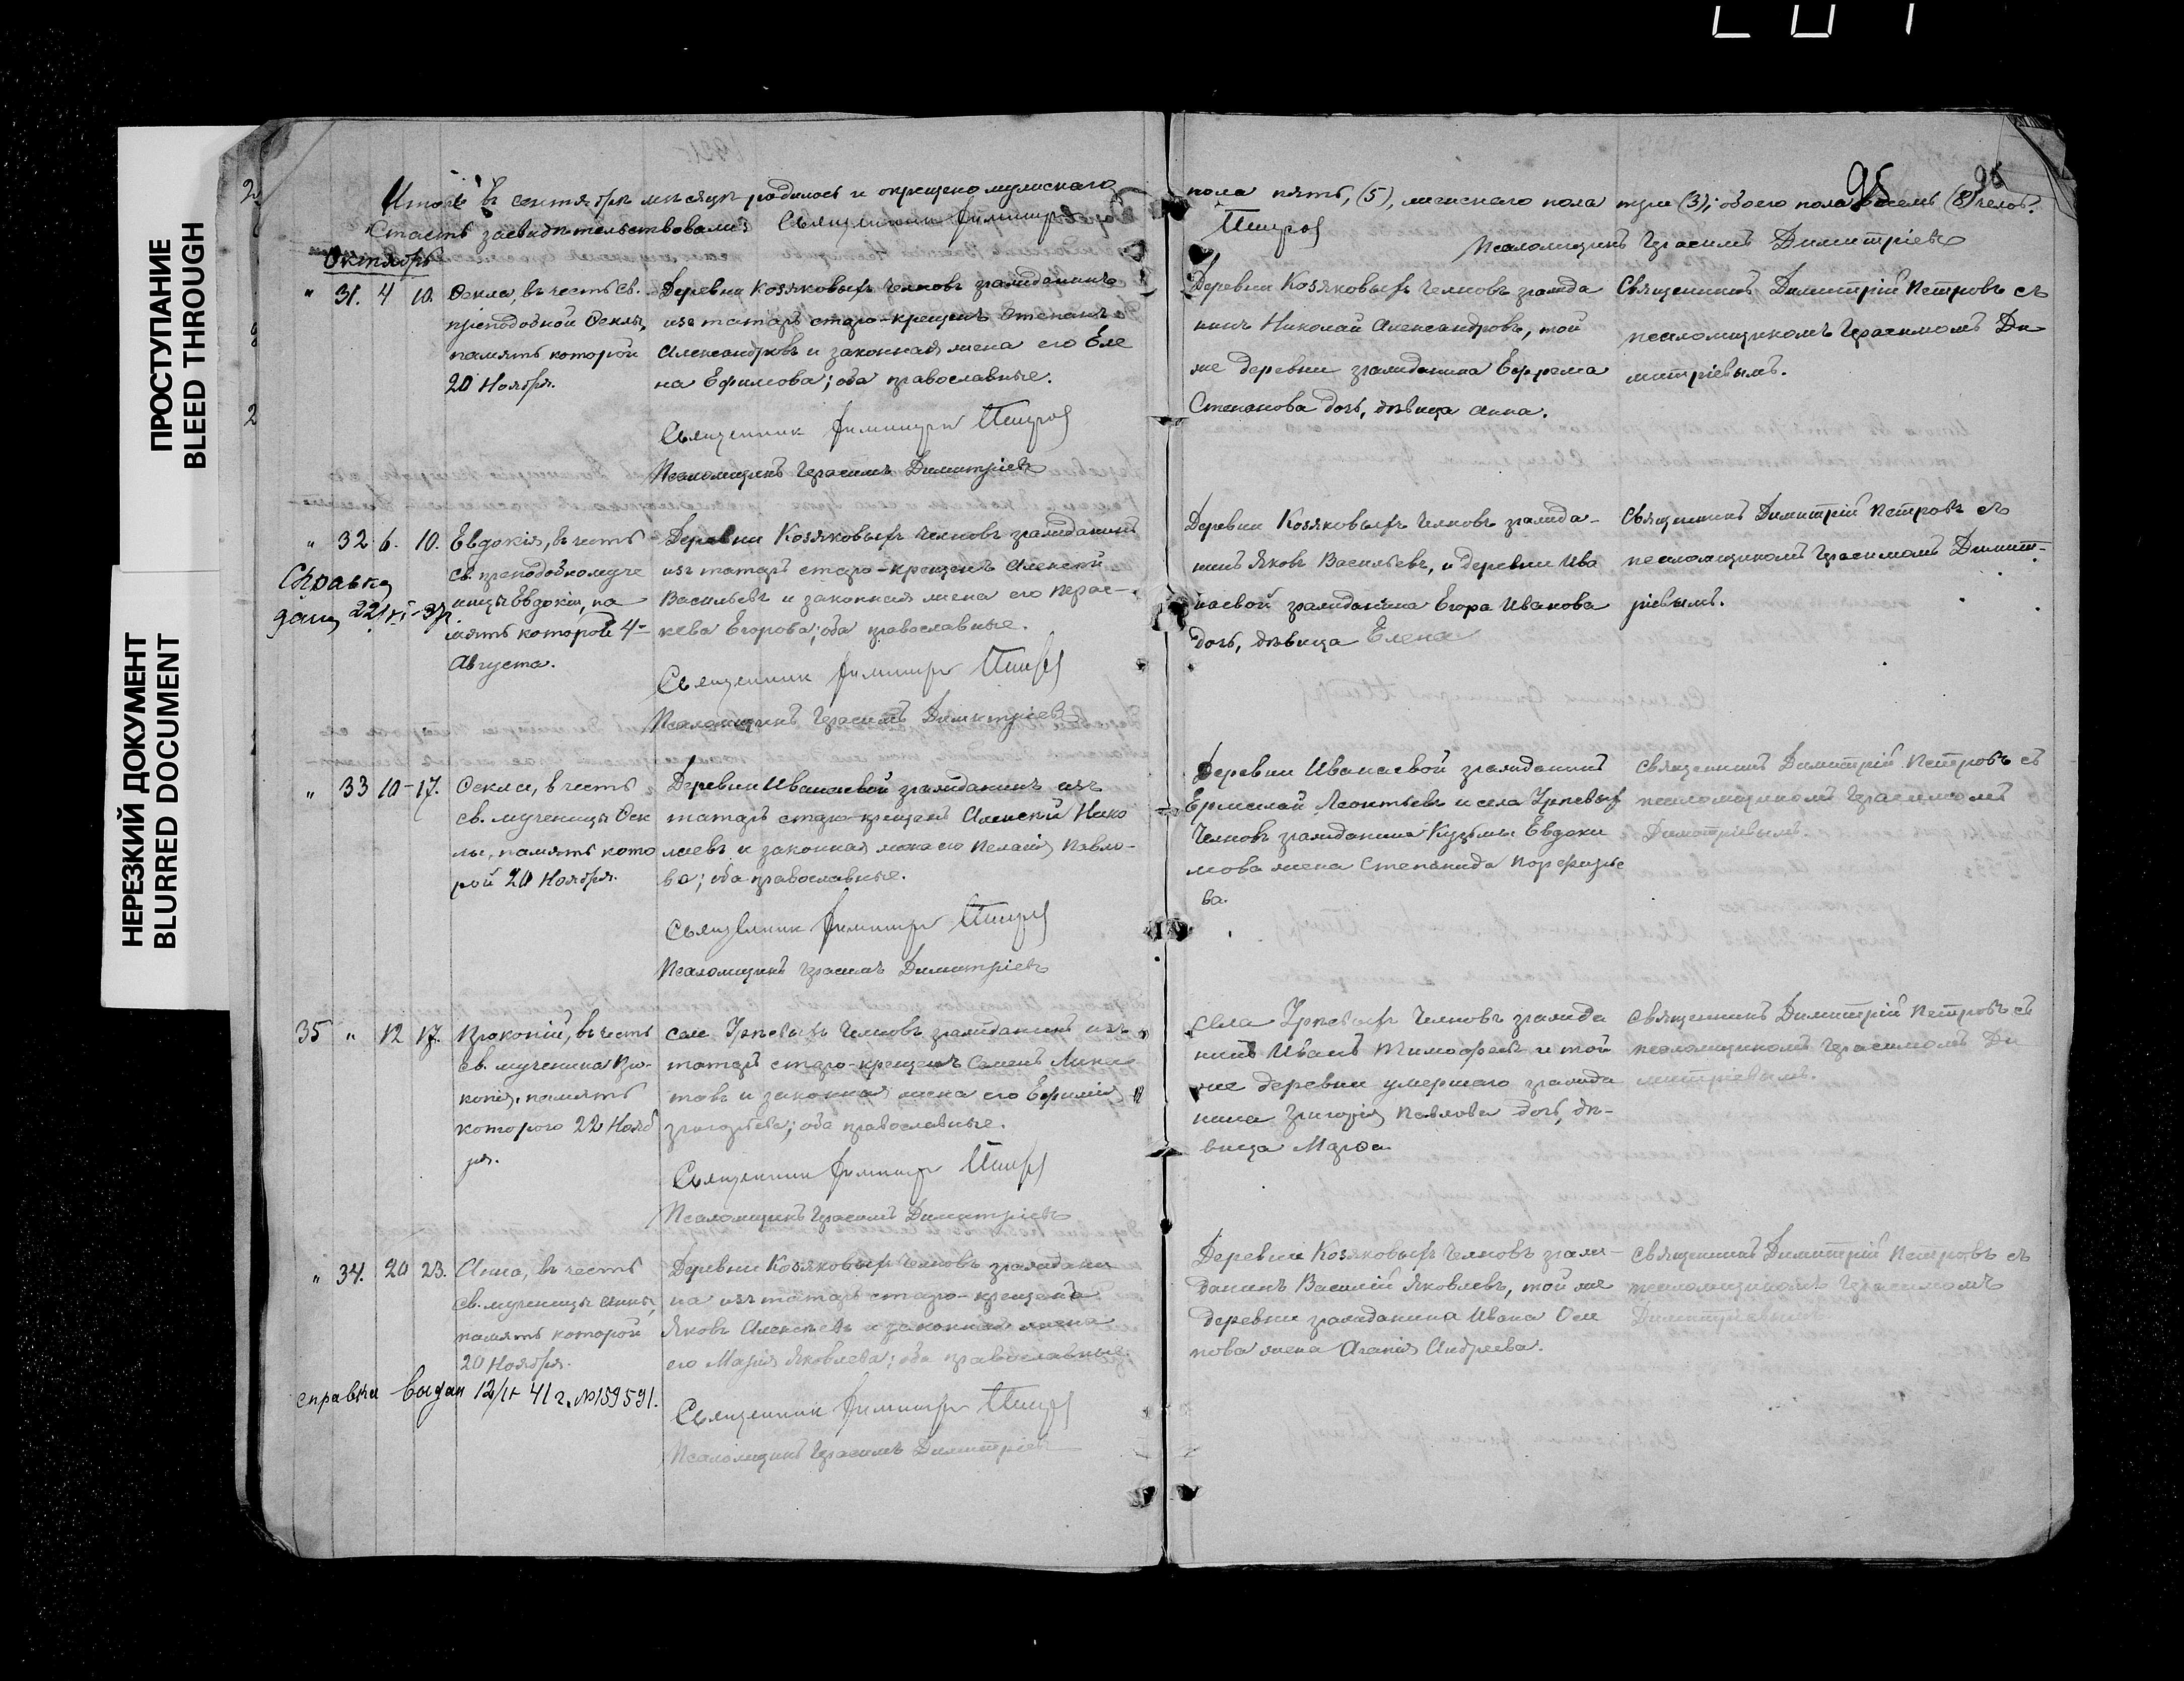 ПРОСТУПАНИЕ
BLEED THROUGH
НЕРЕЗКИЙ ДОКУМЕНТ
BLURRED DOCUMENT
95
Итого въ сентябрѣ мѣсяцѣ родилось и окрещено мужскаго
пола пять, (5), женскаго пола три (3); обоего пола восемь (8) челов.
засвидѣтельствовали: Священникъ Димитрій
Петровъ
Псаломщикъ Герасимъ Димитріевъ
Октябрь
" 31. 4 10. Ѳекла, въ честь св.
преподобной Ѳеклы,
память которой
20 Ноября.
Деревни Козяковыхъ Челновъ гражданинъ
изъ татаръ старо-крещенъ Степанъ
Александровъ и законная жена его Еле
на Ефимова; оба православные.
Священникъ Димитрій Петровъ
Псаломщикъ Герасимъ Димитріевъ
Деревни Козяковыхъ Челновъ гражда
нинъ Николай Александровъ, той
же деревни гражданина Ефрема
Степанова дочь, дѣвица Анна.
Священникъ Димитрій Петровъ съ
псаломщикомъ Герасимомъ Ди
митріевымъ.
" 32. 6. 10. Евдокія, въ честь
св. преподобномуче
ницы Евдокіи, па
мять которой 4-
Августа.
Справка
дана 22/XI-37г.
Деревни Козяковыхъ Челновъ гражданинъ
изъ татаръ старо-крещенъ Алексѣй
Васильевъ и законная жена его Парас-
кева Егорова; оба православные.
Священникъ Димитрій Петровъ
Псаломщикъ Герасимъ Димитріевъ
Деревни Козяковыхъ Челновъ гражда-
нинъ Яковъ Васильевъ, и деревни Ива
наевой гражданина Егора Иванова
дочь, дѣвица Елена
Священникъ Димитрій Петровъ съ
псаломщикомъ Герасимомъ Димит-
ріевымъ.
" 33 10- 17. Ѳекла, въ честь
св. мученицы Ѳек
лы, память кото
рой 20 Ноября.
Деревни Иванаевой гражданинъ изъ
татаръ старо-крещенъ Алексѣй Нико
лаевъ и законная жена его Пелагія Павло-
ва; оба православные.
Священникъ Димитрій Петровъ
Псаломщикъ Герасимъ Димитріевъ
Деревни Иванаевой гражданинъ
Ермолай Леонтьевъ и села
Челновъ гражданина Кузьмы Евдоки
мова жена Степанида Порфирье
ва.
Священникъ Димитрій Петровъ съ
псаломщикомъ Герасимомъ
Димитріевымъ.
35 " 12 17. Прокопій, въ честь
св. мученика Про-
копія, память
которого 22 Нояб
ря.
села Челновъ гражданинъ изъ
татаръ старо-крещенъ Семенъ Мики
товъ и законная жена его Ефимія
Григорьева; оба православные.
Священникъ Димитрій Петровъ
Псаломщикъ Герасимъ Димитріевъ
села Челновъ гражда
нинъ Иванъ Тимофеевъ и той
же деревни умершаго гражда
нина Григорія Павлова дочь, дѣ-
вица Марѳа
Священникъ Димитрій Петровъ съ
псаломщикомъ Герасимомъ Ди
митріевымъ.
" 34. 20 23. Анна, въ честь
св. мученицы Анны,
память которой
20 Ноября.
справка выдан 12/ 41 г. №159591.
Деревни Козяковыхъ Челновъ граждани
на изъ татаръ старо-крещена
Яковъ Алексѣевъ и законная жена
его Марія Яковлева; оба православные.
Священникъ Димитрій Петровъ
Псаломщикъ Герасимъ Димитріевъ
Деревни Козяковыхъ Челновъ граж-
данинъ Василій Яковлевъ, той же
деревни гражданина Ивана Оси
пова жена Агапія Андреева.
Священникъ Димитрій Петровъ съ
псаломщикомъ Герасимомъ
Димитріевымъ